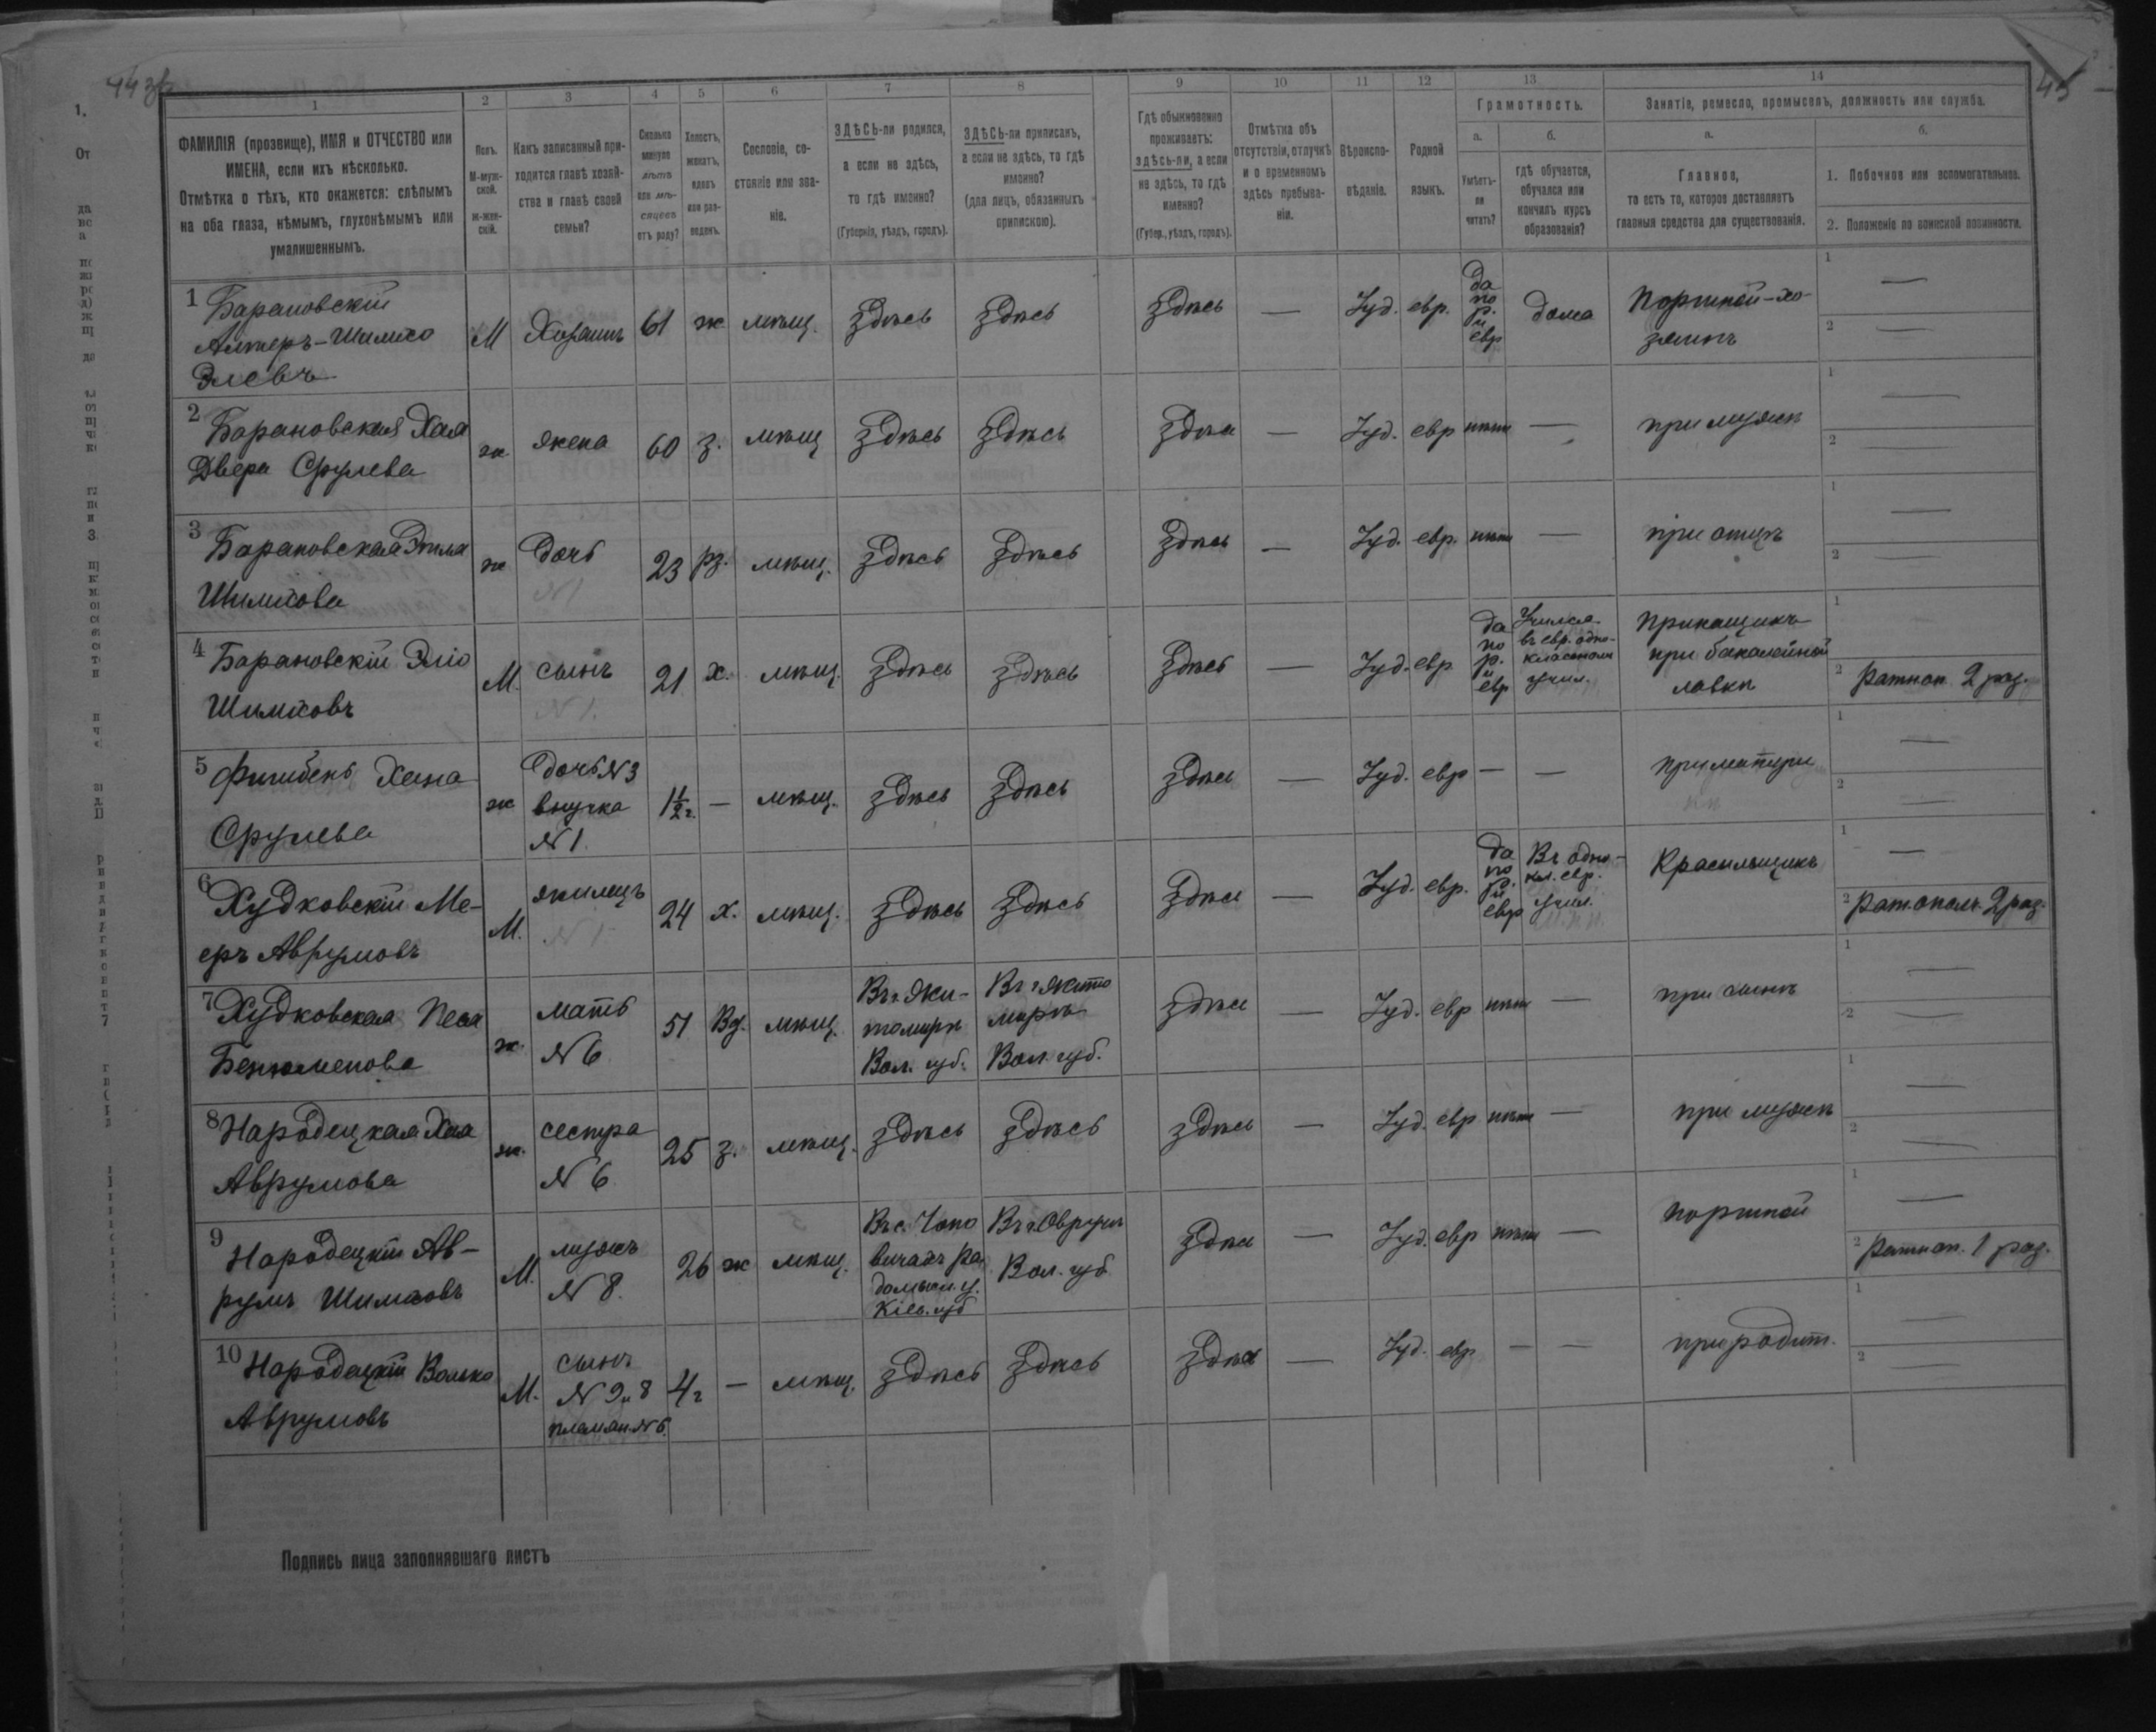 45
1 2 3 4 5 6 7 8 9 10 11 12 13 14
ФАМИЛІЯ (прозвище), ИМЯ и ОТЧЕСТВО или ИМЕНА, если ихъ нѣсколько.
Отмѣтка о тѣхъ, кто окажется: слѣпымъ на оба глаза, нѣмымъ, глухонѣмымъ или умалишеннымъ.
Полъ. М-мужской. Ж-женскій.
Какъ записанный приходится главѣ хозяйства и главѣ своей семьи?
Сколько минуло лѣтъ или мѣсяцевъ отъ роду?
Холостъ, женатъ, вдовъ или разведенъ.
Сословіе, состояніе или званіе.
ЗДѢСЬ-ли родился, а если не здѣсь, то гдѣ именно? (Губернія, уѣздъ, городъ).
ЗДѢСЬ-ли приписанъ, а если не здѣсь, то гдѣ именно? (для лицъ, обязанныхъ припискою).
Гдѣ обыкновенно проживаетъ: здѣсь-ли, а если не здѣсь, то гдѣ именно? (Губер., уѣздъ, городъ).
Отмѣтка объ отсутствіи, отлучкѣ и о временномъ здѣсь пребываніи.
Вѣроисповѣданіе.
Родной языкъ.
Грамотность.
а. Умѣетъ-ли читать?
б. гдѣ обучается, обучался или кончилъ курсъ образованія?
Занятіе, ремесло, промыселъ, должность или служба.
а. Главное, то есть то, которое доставляетъ главныя средства для существованія.
б.
1. Побочное или вспомогательное.
2. Положеніе по воинской повинности.
1 Барановскій Алтеръ-Шимко Элевъ М Хозяинъ 61 ж мѣщ. Здѣсь Здѣсь Здѣсь — Іуд. евр. да по р. и евр дома Портной-хозяинъ 1 — 2 —
2 Барановская Хая Двера Срулева ж жена 60 з. мѣщ Здѣсь Здѣсь Здѣсь — Іуд. евр нѣтъ — при мужѣ 1 — 2 —
3 Барановская Этла Шимкова ж дочь N1 23 рз. мѣщ. Здѣсь Здѣсь Здѣсь — Іуд. евр. нѣтъ — при отцѣ 1 — 2 —
4 Барановскій Эліо Шимковъ М. сынъ N1. 21 х. мѣщ. Здѣсь Здѣсь Здѣсь — Іуд. евр да по р. и евр Учился въ евр. одноклассном учил. Прикащикъ при бакалейной лавкѣ 1 2 Ратноп. 2 раз.
5 Фишбень Хана Срулева ж Дочь N3 внучка N1. 1½ г. — мѣщ. Здѣсь Здѣсь Здѣсь — Іуд. евр — — при матери 1 — 2 —
6 Худковскій Мееръ Аврумовъ М. жилецъ N1 24 х. мѣщ. Здѣсь Здѣсь Здѣсь — Іуд. евр. да по р. и евр Въ однокл. евр. учил. Красильщикъ 1 — 2 Рат. ополч. 2 раз.
7 Худковская Песя Бенюменова ж. мать N6 51 Вд. мѣщ. Въ г. Житомирѣ Вол. губ. Въ г Житомирѣ Вол. губ. Здѣсь — Іуд. евр нѣтъ — при сынѣ 1 — 2 —
8 Народецкая Хая Аврумова ж. сестра N6 25 з. мѣщ. Здѣсь Здѣсь Здѣсь — Іуд. евр нѣтъ — при мужѣ 1 — 2 —
9 Народецкій Аврумъ Шимковъ М. мужъ N8. 26 ж мѣщ. Въ с. Чоповичахъ Радомысл. у. Кіев. губ Въ г. Овручѣ Вол. губ Здѣсь — Іуд. евр нѣтъ — портной 1 — 2 Ратноп. 1 раз.
10 Народецкій Волько Аврумовъ М. сынъ N9 и 8 племян. N6. 4 г — мѣщ. Здѣсь Здѣсь Здѣсь — Іуд. евр — — при родит. 1 — 2 —
Подпись лица заполнявшаго листъ